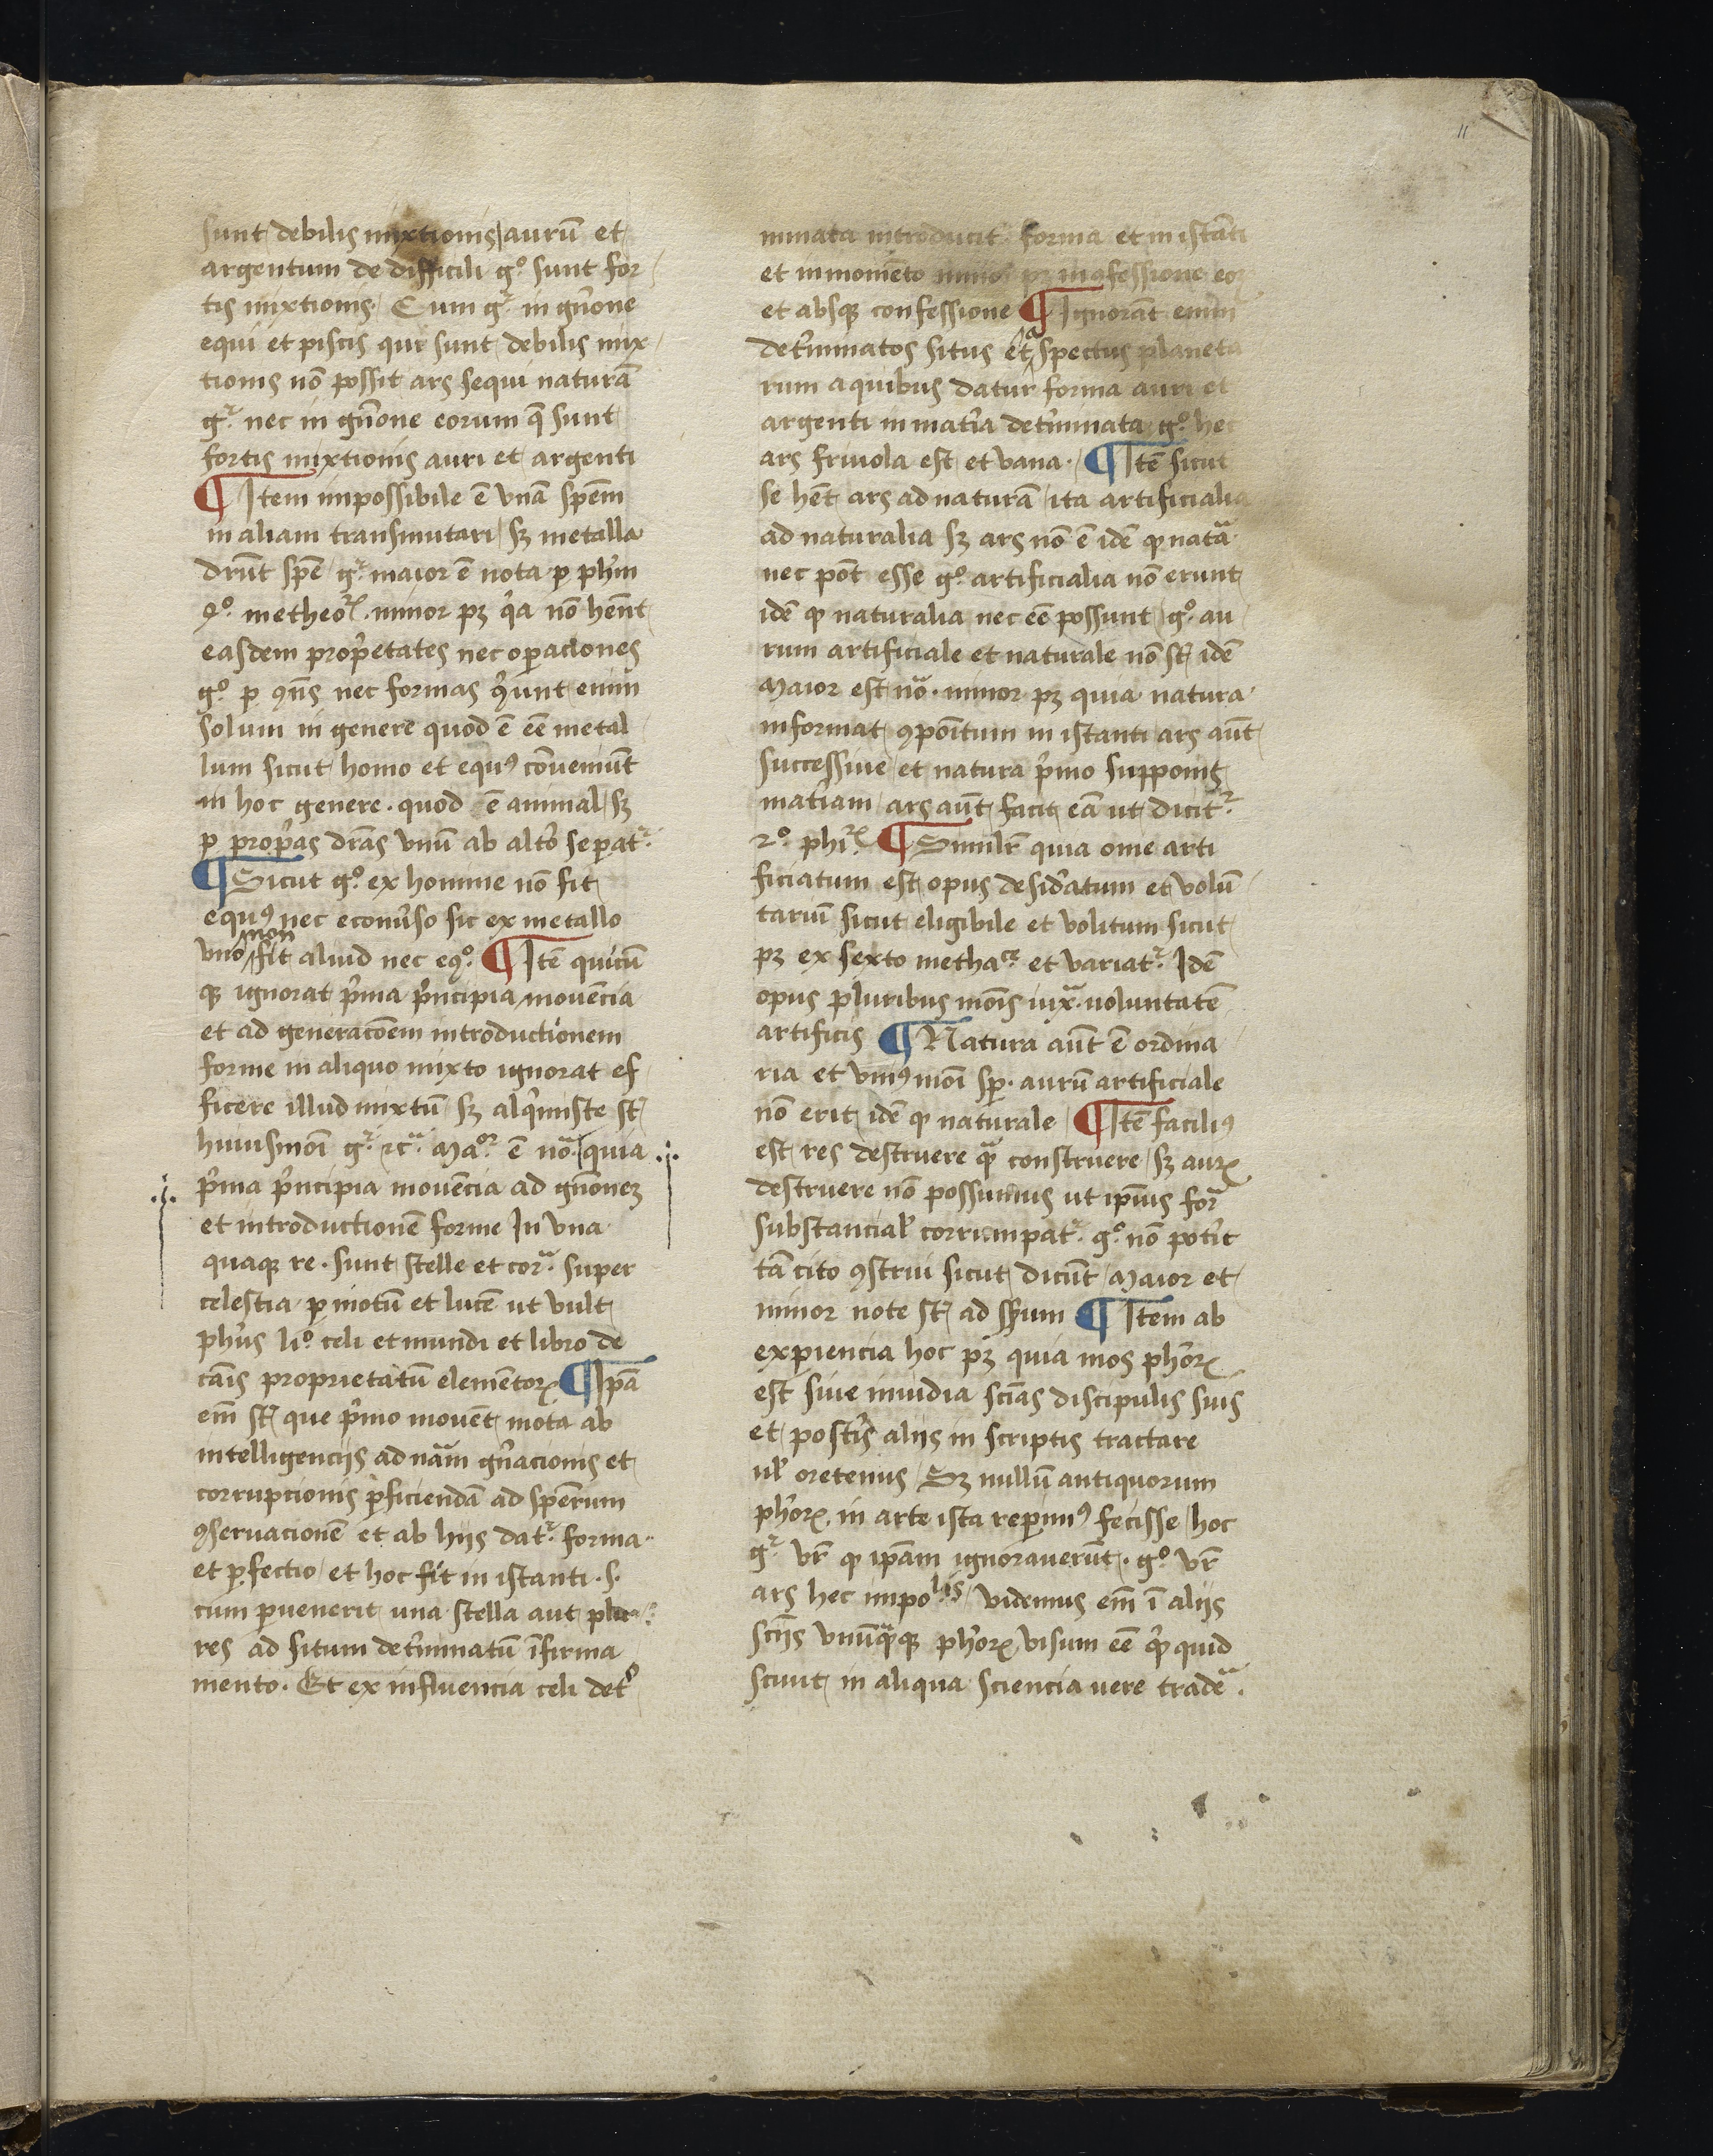 11
sunt debilis mixtionis / aurū et
argentum de difficili gͦ sunt for
tis mixtionis / Cum gͬ in gn̄one
equi et piscis qui sunt debilis mix
tionis nō possit ars sequi naturā
gͬ nec in gn̄one eorum q̄ sunt
fortis mixtionis auri et argenti
¶ Item impossibile ē vnā spēm
in aliam transmutari / sꝫ metalla
drn̄t spē / gͬ maior ē nota ꝑ ph̄m
4ͦ metheoꝝ . minor pꝫ q̓a nō hēnt
easdem prop̓etates nec oꝑaciones
gͦ ꝑ ꝯn̄s nec formas enim
solum in genere quod ē eē metal
lum sicut homo et equꝰ cōueniūt
in hoc genere . quod ē animal / sꝫ
ꝑ prop̓as dr̄as vnū ab alt̓o seꝑatͬ
¶ Sicut gͦ ex homine nō fit
equꝰ nec econu̓so sic ex metallo
vno non fit aliud nec eqͦ . ¶ Itē quicū
qꝫ ignorat p̓ma p̓ncipia mouēcia
et ad generacōem introductionem
forme in aliquo mixto ignorat ef
ficere illud mixtū / sꝫ alq̓miste st̄
huiusmōi gͬ ⁊cͣ Maͦͬ ē nōͣ / quia
p̓ma p̓ncipia mouēcia ad gn̄oneꝫ
et introductionē forme In vna
quaqꝫ re . sunt stelle et corͣ super
celestia ꝑ motū et lucē ut vult
ph̓us liͦ celi et mundi et libro de
cāis proprietatū elementoꝝ ¶ Ipā
em̄ st̄ que p̓mo mouēt mota ab
intelligencijs ad nām gn̓acionis et
corrupcionis ꝑficiendā ad spērum
ꝯseruacionē et ab hijs datͬ forma
et ꝑfectio / et hoc fit in istanti . s.
cum ꝑuenerit una stella aut plu
res ad situm det̓minatū ī firma
mento . Et ex influencia celi det̓
minata introducit forma et in istāti
et in momēto pꝫ in ꝯfessione eoꝝ
et absqꝫ confessione ¶ Ignorāt enim
det̓minatos situs et aspectus planeta
rum a quibus datur forma auri et
argenti in mat̓ia det̓minata gͦ hec
ars friuola est et vana . ¶ Itē sicut
se hēt ars ad naturā / ita artificialia
ad naturalia sꝫ ars nō ē idē ꝙ natͣa
nec pōt esse gͦ artificialia nō erunt
idē ꝙ naturalia nec eē possunt / gͦ au
rum artificiale et naturale nō st̄ idē
Maior est nōͣ . minor pꝫ quia natura
informat ꝯpoītum in istanti ars aūt
successiue et natura p̓mo supponit
mat̓iam / ars aūt facit eā ut dicitͬ
2ͦ phiꝝ ¶ Similr̄ quia ome arti
ficiatum est opus desid̓atum et volū
tariū sicut eligibile et volitum sicut
pꝫ ex sexto methaᶜᵉ et variatͬ Idē
opus pluribus mōis iuxͣ voluntatē
artificis ¶ Natura aūt ē ordina
ria et vniꝰ mōi sꝑ . aurū artificiale
nō erit idē ꝙ naturale ¶ Itē faciliꝰ
est res destruere qͣ̄ construere / sꝫ auꝝ
destruere nō possumus ut ipīus forͣ
substancial̓ corrumpatͬ gͦ nō pot̓it
tā cito ꝯstrui sicut dicūt / Maior et
minor note st̄ ad sēsum ¶ Item ab
exꝑiencia hoc pꝫ quia mos ph̓oꝝ
est siue inuidia scīas discipulis suis
et post̓is alijs in scriptis tractare
ul̓ oretenus / Sꝫ nullū antiquorum
ph̓oꝝ in arte ista reꝑimꝰ fecisse / hoc
gͬ vr̄ ꝙ ipām ignorauerūt . gͦ vr̄
ars hec impoˡⁱˢ / videmus em̄ ī alijs
scīis vnūqͣ̄qꝫ ph̓oꝝ visum eē qͥ̄ quid
sciuit in aliqua sciencia uere tradeͣ .